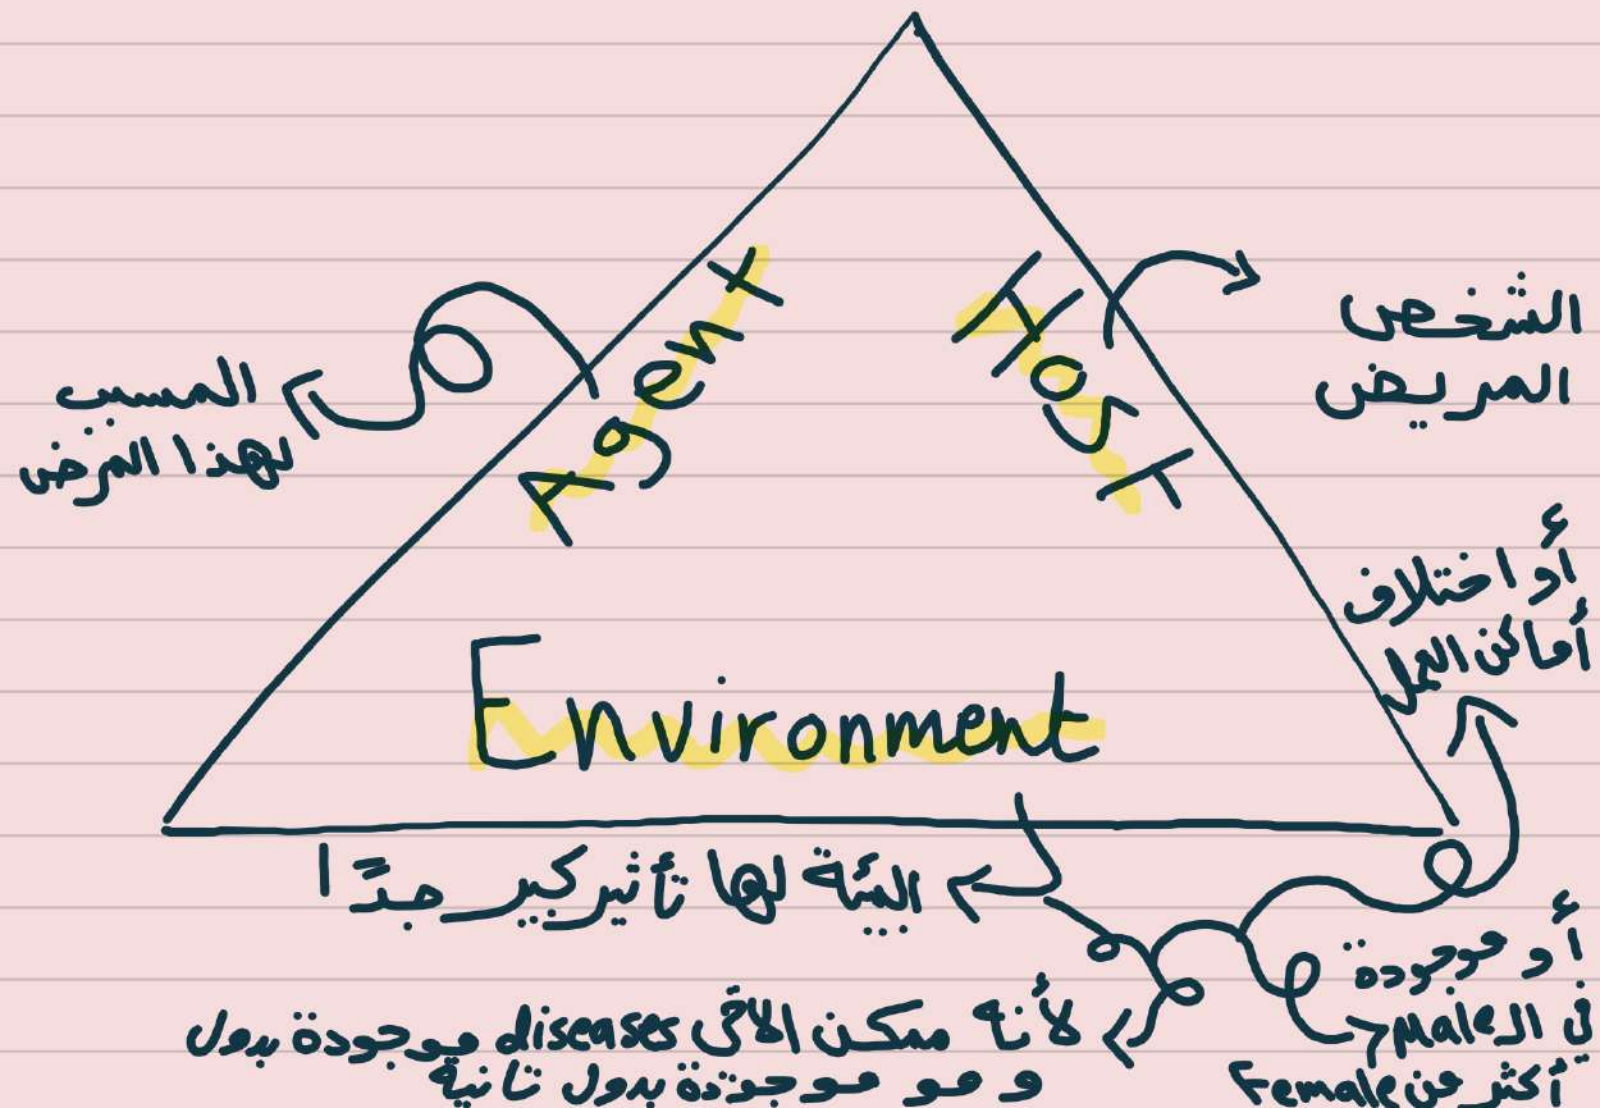 Agent
Host
Environment
المسبب
لهذا المرض
الشخص
المريض
أو اختلاف
أماكن العمل
البيئة لها تأثير كبير جدًا
لأنه ممكن ألاقي diseases موجودة بدول
و مو موجودة بدول تانية
أو موجودة
في الـ male
أكثر من Female